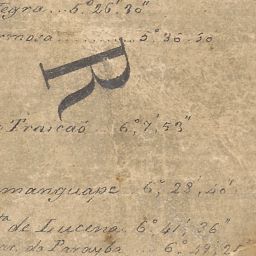 egra... 5.° 26.' 30."
ermosa............. 5.° 36. 30
R
Traicaó 6.° 7.' 53."
manguape 6.° 28.' 40.
de Lucena 6.° 41.' 36."
da Parayba ... 6.° 49.' 25.